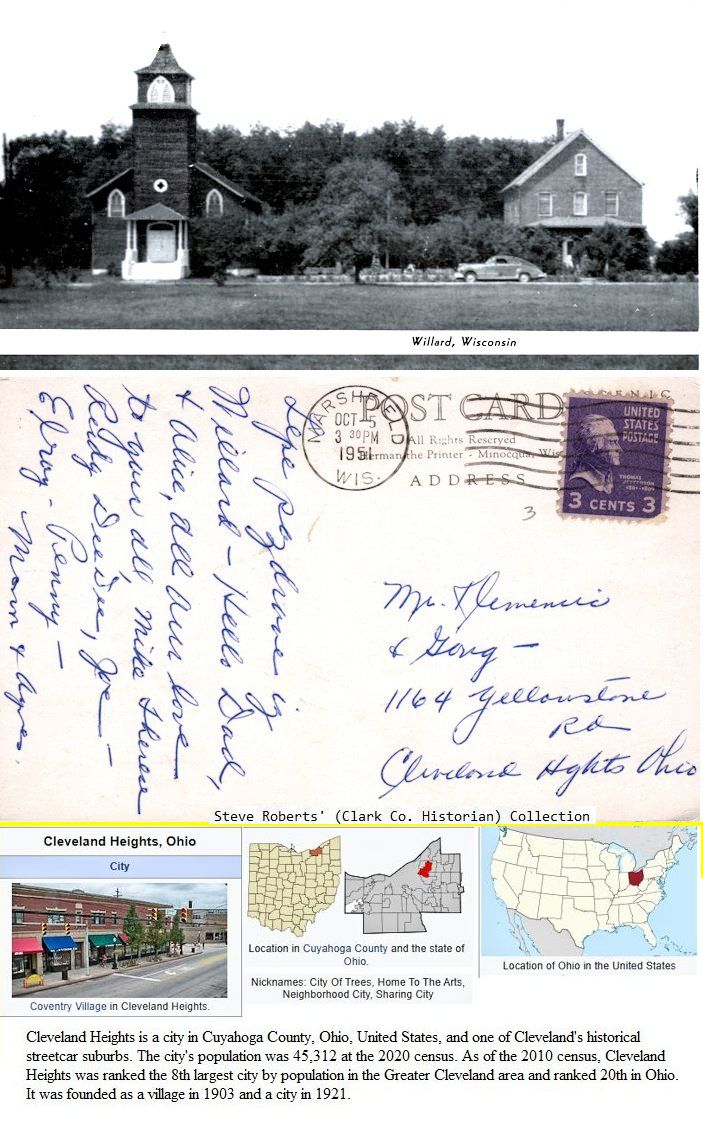 Willard, Wisconsin
MARSHFIELD
OCT 5
3 30 PM
1951
WIS.
POST CARD
All Rights Reserved
Herman the Printer - Minocqua, Wis
ADDRESS
UNITED
STATES
POSTAGE
THOMAS
JEFFERSON
1801-1809
3 CENTS 3
3
Lepe Pozdrave iz
Willard - Hello Dad,
& Alice, all our love
to you all Mike Therese
Rudy Dee Dee, Joe -
Elroy - Penny -
Mom & Agnes.
Mr. Klemencic
& Gang -
1164 Yellowstone
Rd
Cleveland Hghts Ohio
Steve Roberts' (Clark Co. Historian) Collection
Cleveland Heights, Ohio
City
Coventry Village in Cleveland Heights.
Location in Cuyahoga County and the state of
Ohio.
Nicknames: City Of Trees, Home To The Arts,
Neighborhood City, Sharing City
Location of Ohio in the United States
Cleveland Heights is a city in Cuyahoga County, Ohio, United States, and one of Cleveland's historical
streetcar suburbs. The city's population was 45,312 at the 2020 census. As of the 2010 census, Cleveland
Heights was ranked the 8th largest city by population in the Greater Cleveland area and ranked 20th in Ohio.
It was founded as a village in 1903 and a city in 1921.